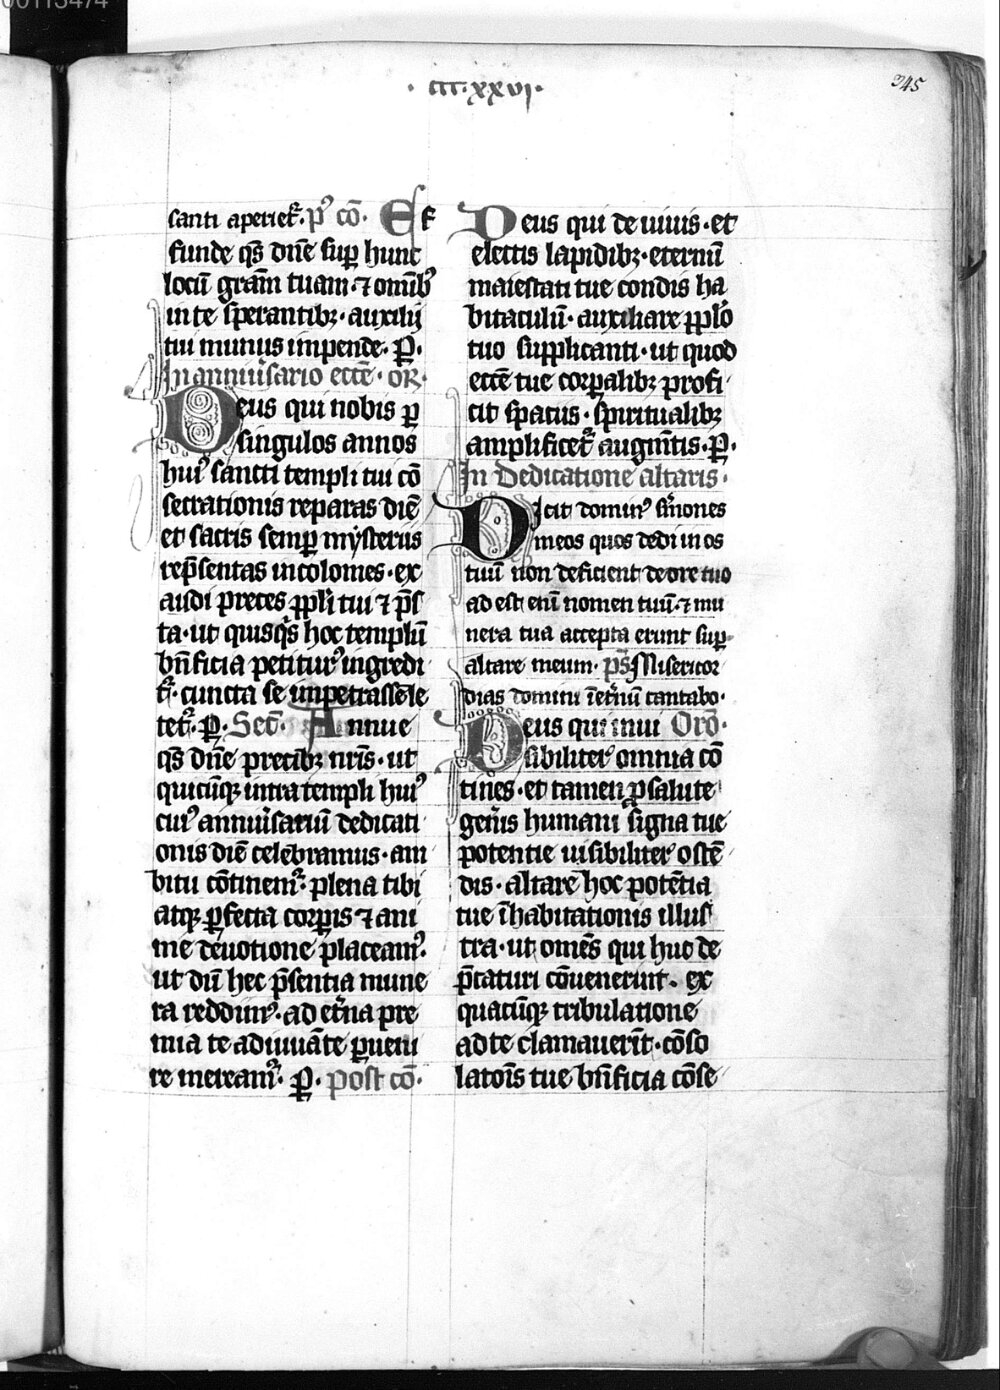 00113474
· ccc·xxvi·
345
santi aperiet᷑· p᷒ cō· Ef
funde qs̄ dn̄e suꝑ hunc
locū gram̄ tuam ⁊ om̄ib᷒
in te sperantibꝫ· auxilij
tui munus impende· ꝑ·
In anniu̾sario ecc̄e· oR·
Deus qui nobis ꝑ
singulos annos
hui᷒ sancti templi tui cō
secrationis reparas diē
et sacris semꝑ mysteriis
rep̄sentas incolomes· ex
audi preces ꝓpl̄i tui ⁊ p̄s
ta· ut quisqs̄ hoc templū
bn̄ficia petitur᷒ ingredi
t᷑· cuncta se impetrasse le
tet᷑· ꝑ· Sec̄· Annue
qs̄ dn̄e precibꝫ nr̄is· ut
quicūqꝫ intra templi hui᷒
cui᷒ anniu̾sariū dedicati
onis diē celebramus· am
bitu cōtinem᷒· plena tibi
atqꝫ ꝑfecta corꝑis ⁊ ani
me deuotione placeam᷒·
ut dū hec p̄sentia mune
ra reddim᷒· ad et̾na pre
mia te adiuuāte ꝑueni
re meream᷒· ꝑ· post cō·
Deus qui de uiuis· et
electis lapidibꝫ· eternū
maiestati tue condis ha
bitaculū· auxiliare ꝓpl̄o
tuo supplicanti· ut quod
ecc̄e tue corꝑalibꝫ profi
cit spacijs· spiritualibꝫ
amplificet᷑ augm̄tis· ꝑ·
In Dedicatione altaris·
Dicit domin᷒ sm̾ones
meos quos dedi in os
tuū non deficient de ore tuo
ad est enī nomen tuū· ⁊ mu
nera tua accepta erunt suꝑ
altare meum· ps̄ Misericor
dias domini īet̾nū cantabo·
Deus qui inui Orō·
sibilit̾ omnia cō
tines· et tamen ꝓ salute
gen̾is humani signa tue
potentie uisibilit̾ ostē
dis· altare hoc potētia
tue īhabitationis illus
tra· ut om̄es qui huc de
p̄caturi cōuenerint· ex
quacūqꝫ tribulatione
ad te clamauerīt· cōso
latōis tue bn̄ficia cōse